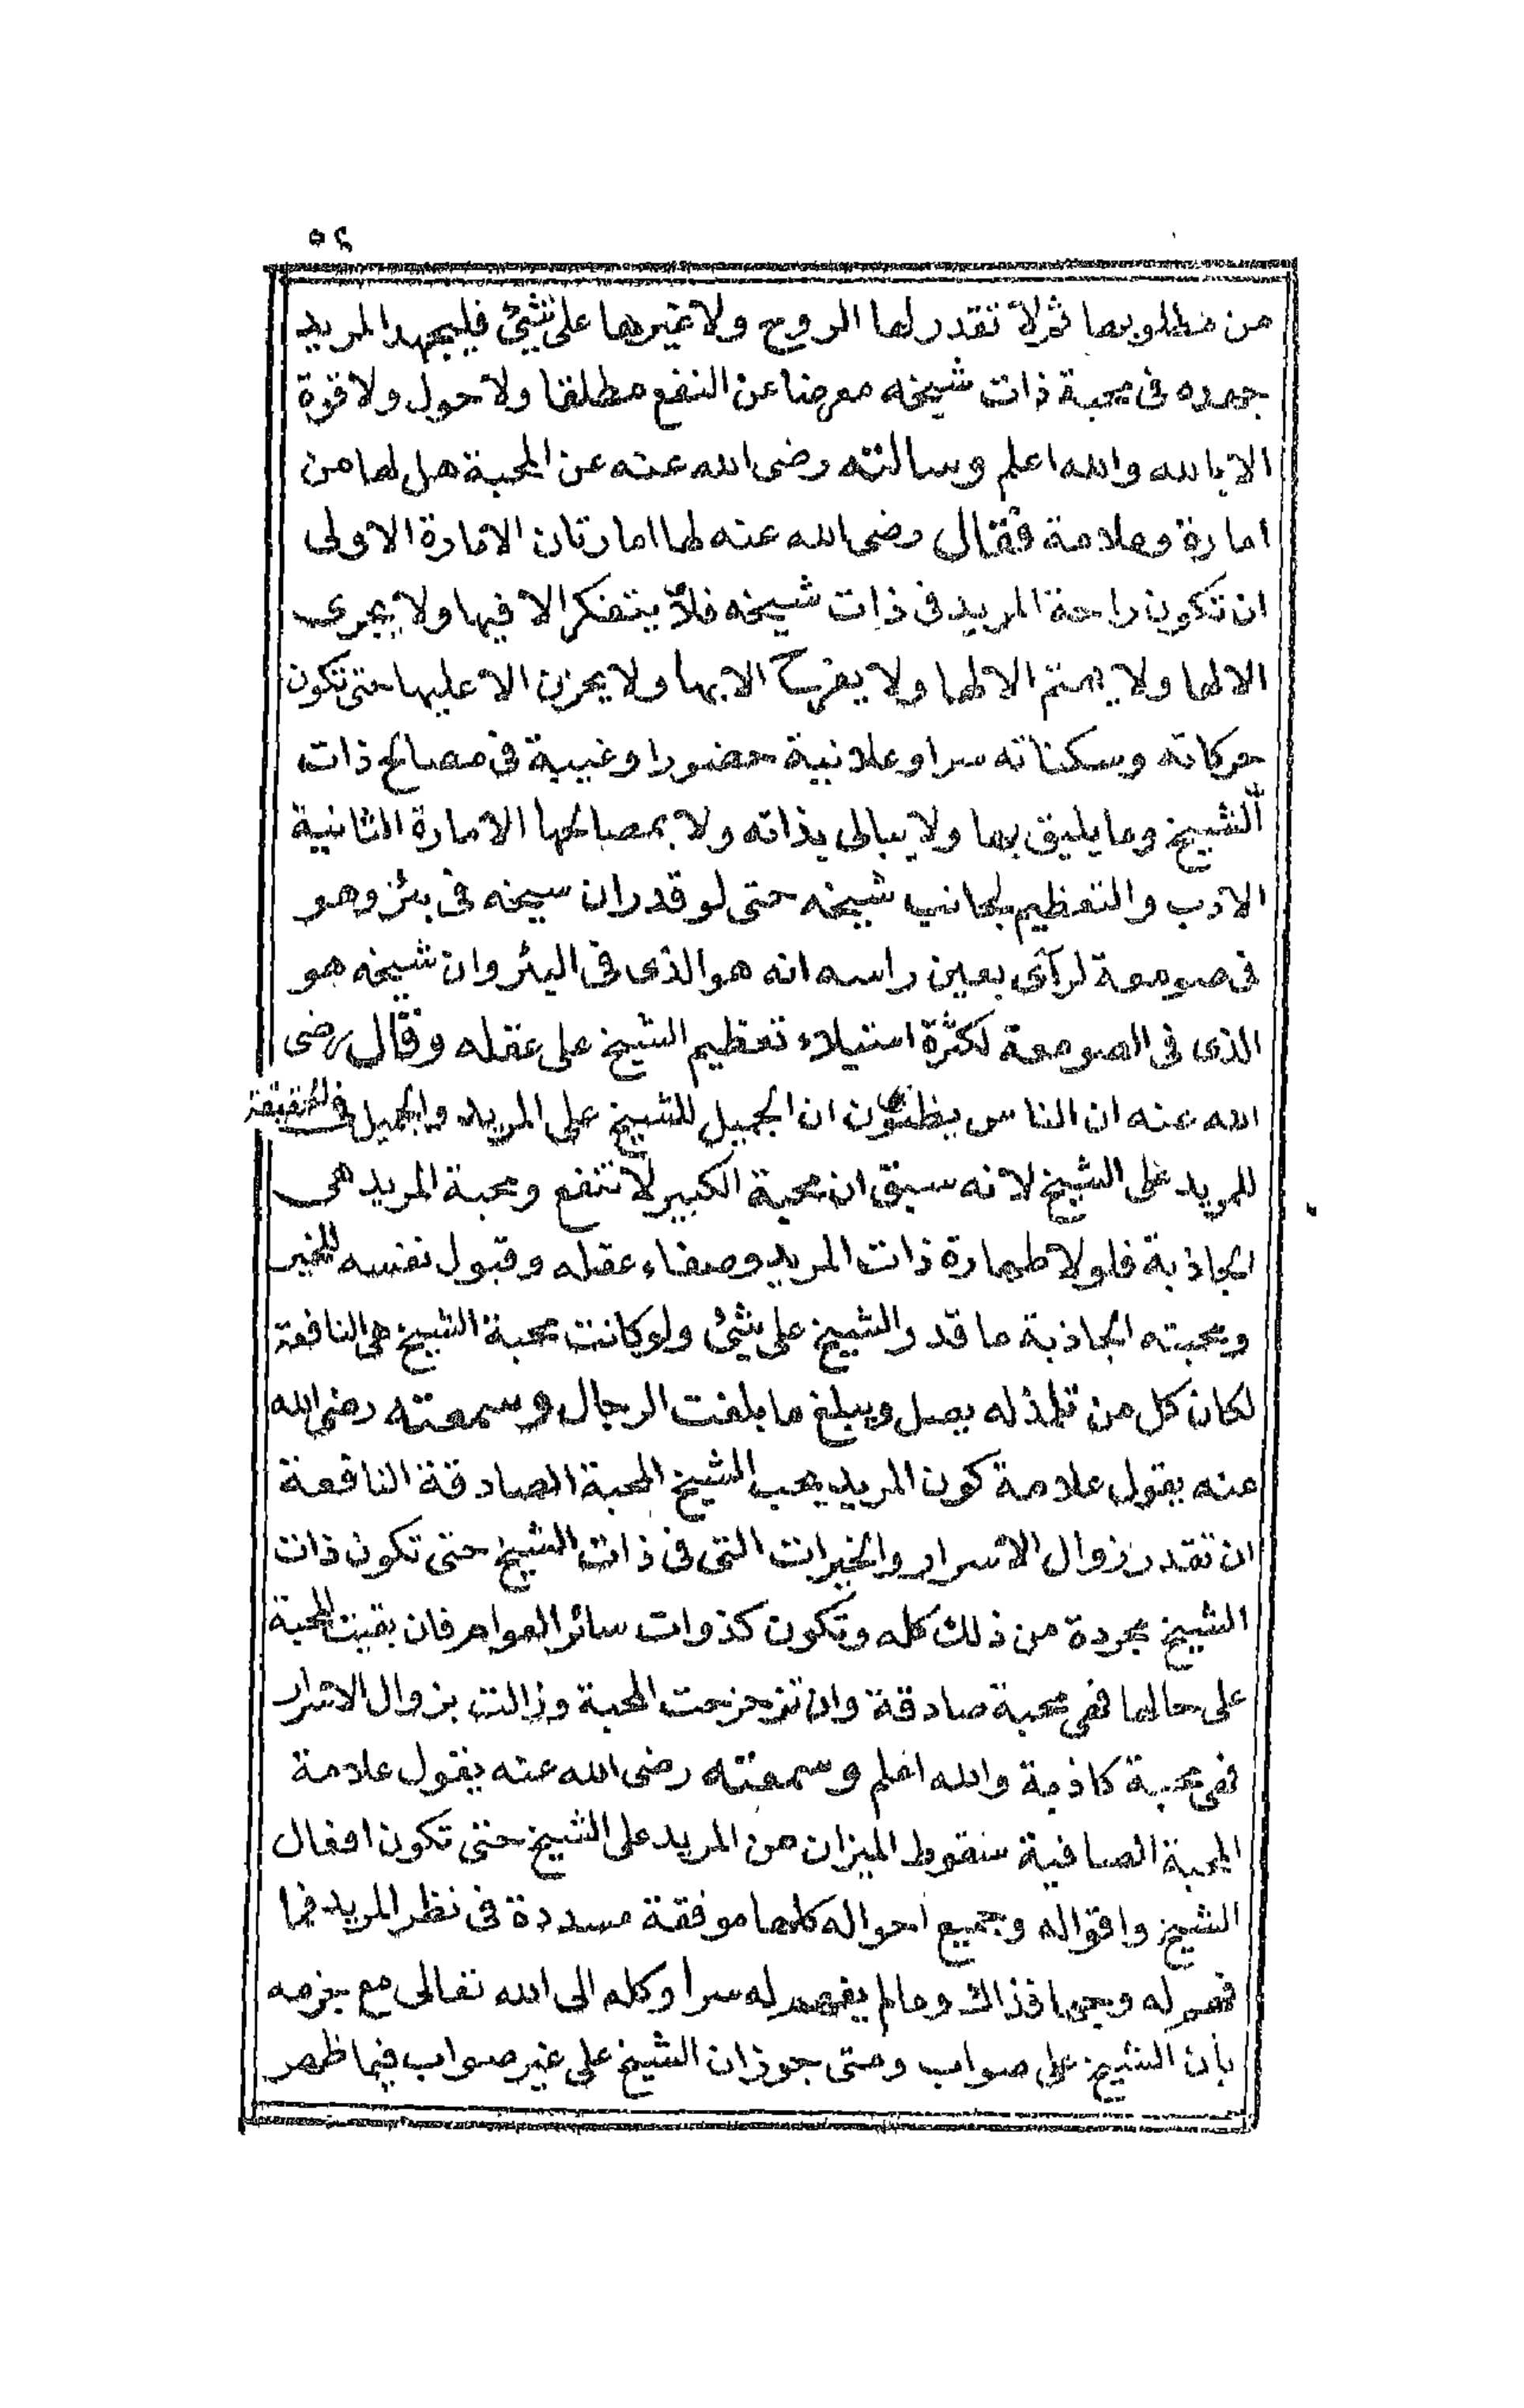 ٥٤
من مطلوبها ثم لا تقدر لها الروح ولا غيرها على شئ فليجهد المريد
جهده فى محبة ذات شيخه معرضا عن النفع مطلقا ولا حول ولا قوة
الا بالله والله اعلم وسالته رضى الله عنه عن المحبة هل لها من
امارة وعلامة فقال رضى الله عنه لها امارتان الامارة الاولى
ان تكون راحة المريد فى ذات شيخه فلا يتفكر الا فيها ولا يجرى
الا لها ولا يهتم الا لها ولا يفرح الا بها ولا يحزن الا عليها حتى تكون
حركاته وسكناته سرا وعلانية حضورا وغيبة فى مصالح ذات
الشيخ وما يليق بها ولا يبالى بذاته ولا بمصالحها الامارة الثانية
الادب والتعظيم لجانب شيخه حتى لو قدر ان شيخه فى بئر وهو
فى صومعة لرآى بعين راسه انه هو الذى فى البئر وان شيخه هو
الذى فى الصومعة لكثرة استيلاء تعظيم الشيخ على عقله وقال رضى
الله عنه ان الناس يظنون ان الجميل للشيخ على المريد والجميل فى الحقيقة
للمريد على الشيخ لانه سبق ان محبة الكبير لا تنفع ومحبة المريد هى
الجاذبة فلولا طهارة ذات المريد وصفاء عقله وقبول نفسه للخير
ومحبته الجاذبة ما قدر الشيخ على شئ ولو كانت محبة الشيخ هى النافعة
لكان كل من تلمذ له يصل ويبلغ ما بلغت الرجال وسمعته رضى الله
عنه يقول علامة كون المريد يحب الشيخ المحبة الصادقة النافعة
ان تقدر زوال الاسرار والخيرات التى فى ذات الشيخ حتى تكون ذات
الشيخ مجردة من ذلك كله وتكون كذوات سائر العوام فان بقيت المحبة
على حالها فهى محبة صادقة وان تزحزحت المحبة وزالت بزوال الاسرار
فهى محبة كاذبة والله اعلم وسمعته رضى الله عنه يقول علامة
المحبة الصافية سقوط الميزان من المريد على الشيخ حتى تكون افعال
الشيخ واقواله وجميع احواله كلها موفقة مسددة فى نظر المريد فما
فهم له وجها فذاك وما لم يفهم له سرا وكله الى الله تعالى مع جزمه
بأن الشيخ على صواب ومتى جوز ان الشيخ على غير صواب فيما ظهر